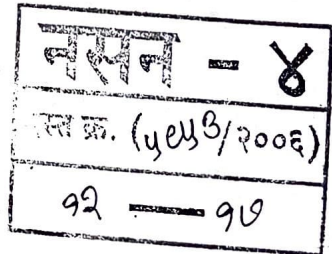 नसन - ४
दस्त क्र. (५९५३/२००६)
१२ — १७